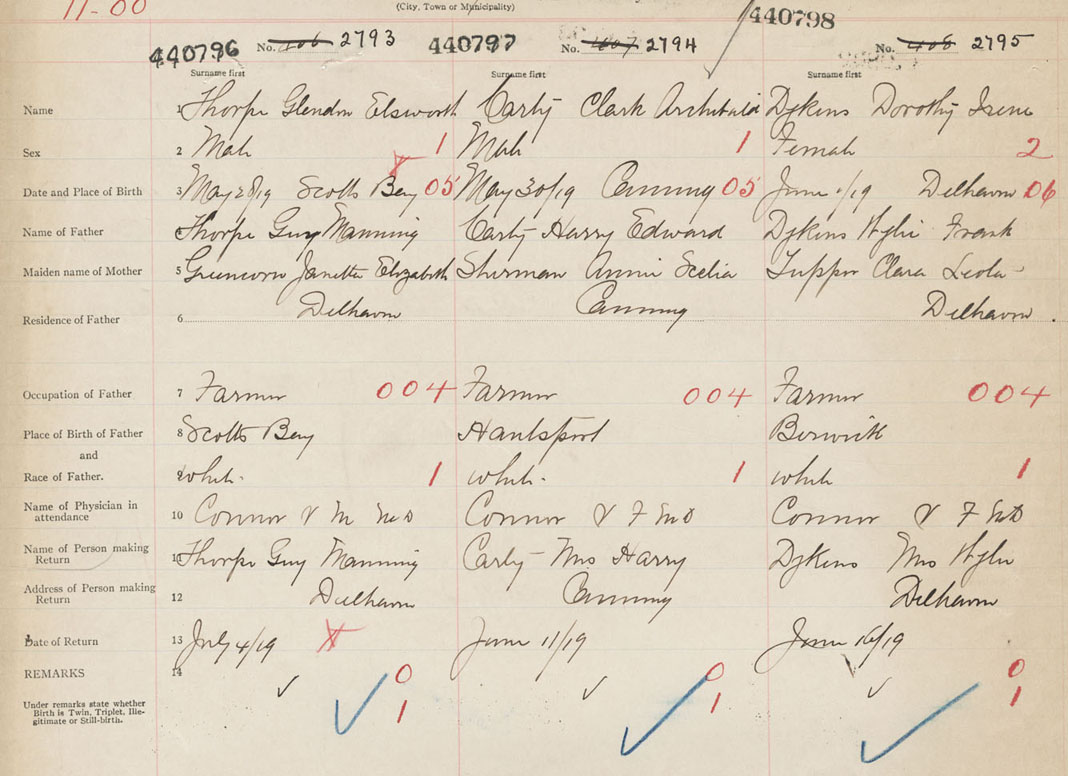 11-00
(City, Town or Municipality)
440796 No. 406 2793 440797 No. 407 2794 440798 No. 408 2795
Surname first Surname first Surname first
Name 1 Thorpe Glendon Elsworth Carty Clark Archibald Dykins Dorothy Irene
Sex 2 Male 1 Male 1 Female 2
Date and Place of Birth 3 May 28/19 Scotts Bay 05 May 30/19 Canning 05 June 1/19 Delhaven 06
Name of Father 4 Thorpe Guy Manning Carty Harry Edward Dykins Wylie Frank
Maiden name of Mother 5 Greenwood Janetta Elizabeth Sherman Annie Scelia Tupper Clara Leola
Residence of Father 6 Delhaven Canning Delhaven
Occupation of Father 7 Farmer 004 Farmer 004 Farmer 004
Place of Birth of Father 8 Scotts Bay Hantsport Berwick
and
Race of Father. 9 white 1 white 1 white 1
Name of Physician in attendance 10 Connor & M D Connor & F M D Connor & F M D
Name of Person making Return 11 Thorpe Guy Manning Carty Mrs Harry Dykins Mrs Wylie
Address of Person making Return 12 Delhaven Canning Delhaven
Date of Return 13 July 4/19 June 11/19 June 16/19
REMARKS 14 0 0 0
Under remarks state whether Birth is Twin, Triplet, Ille-
gitimate or Still-birth. 1 1 1